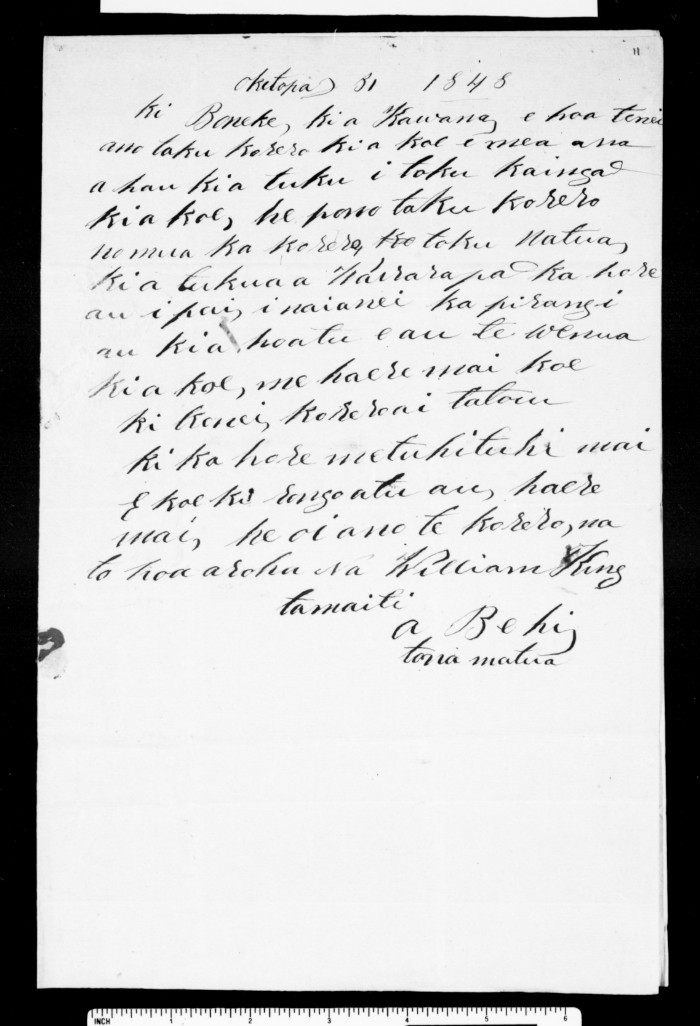 11
Oketopa 31 1848
ki Boneke, ki a Kawana, e hoa tenei
ano taku korero ki a koe e mea ana
a hau kia tuku i toku kainga
kia koe, he pono taku korero
no mua ka korero, ke toku Matua,
kia tukua a Wairarapa ka hore
au i pai, inaianei ka pirangi
au kia hoatu e au te wenua
kia koe, me haere mai koe
ki konei, korero ai tatou
ki ka hore me tuhituhi mai
e koe ki rongo atu au, haere
mai, he oi ano te korero, na
to hoa aroha na William King
tamaiti
a Behi,
tona matua
INCH 1 2 3 4 5 6